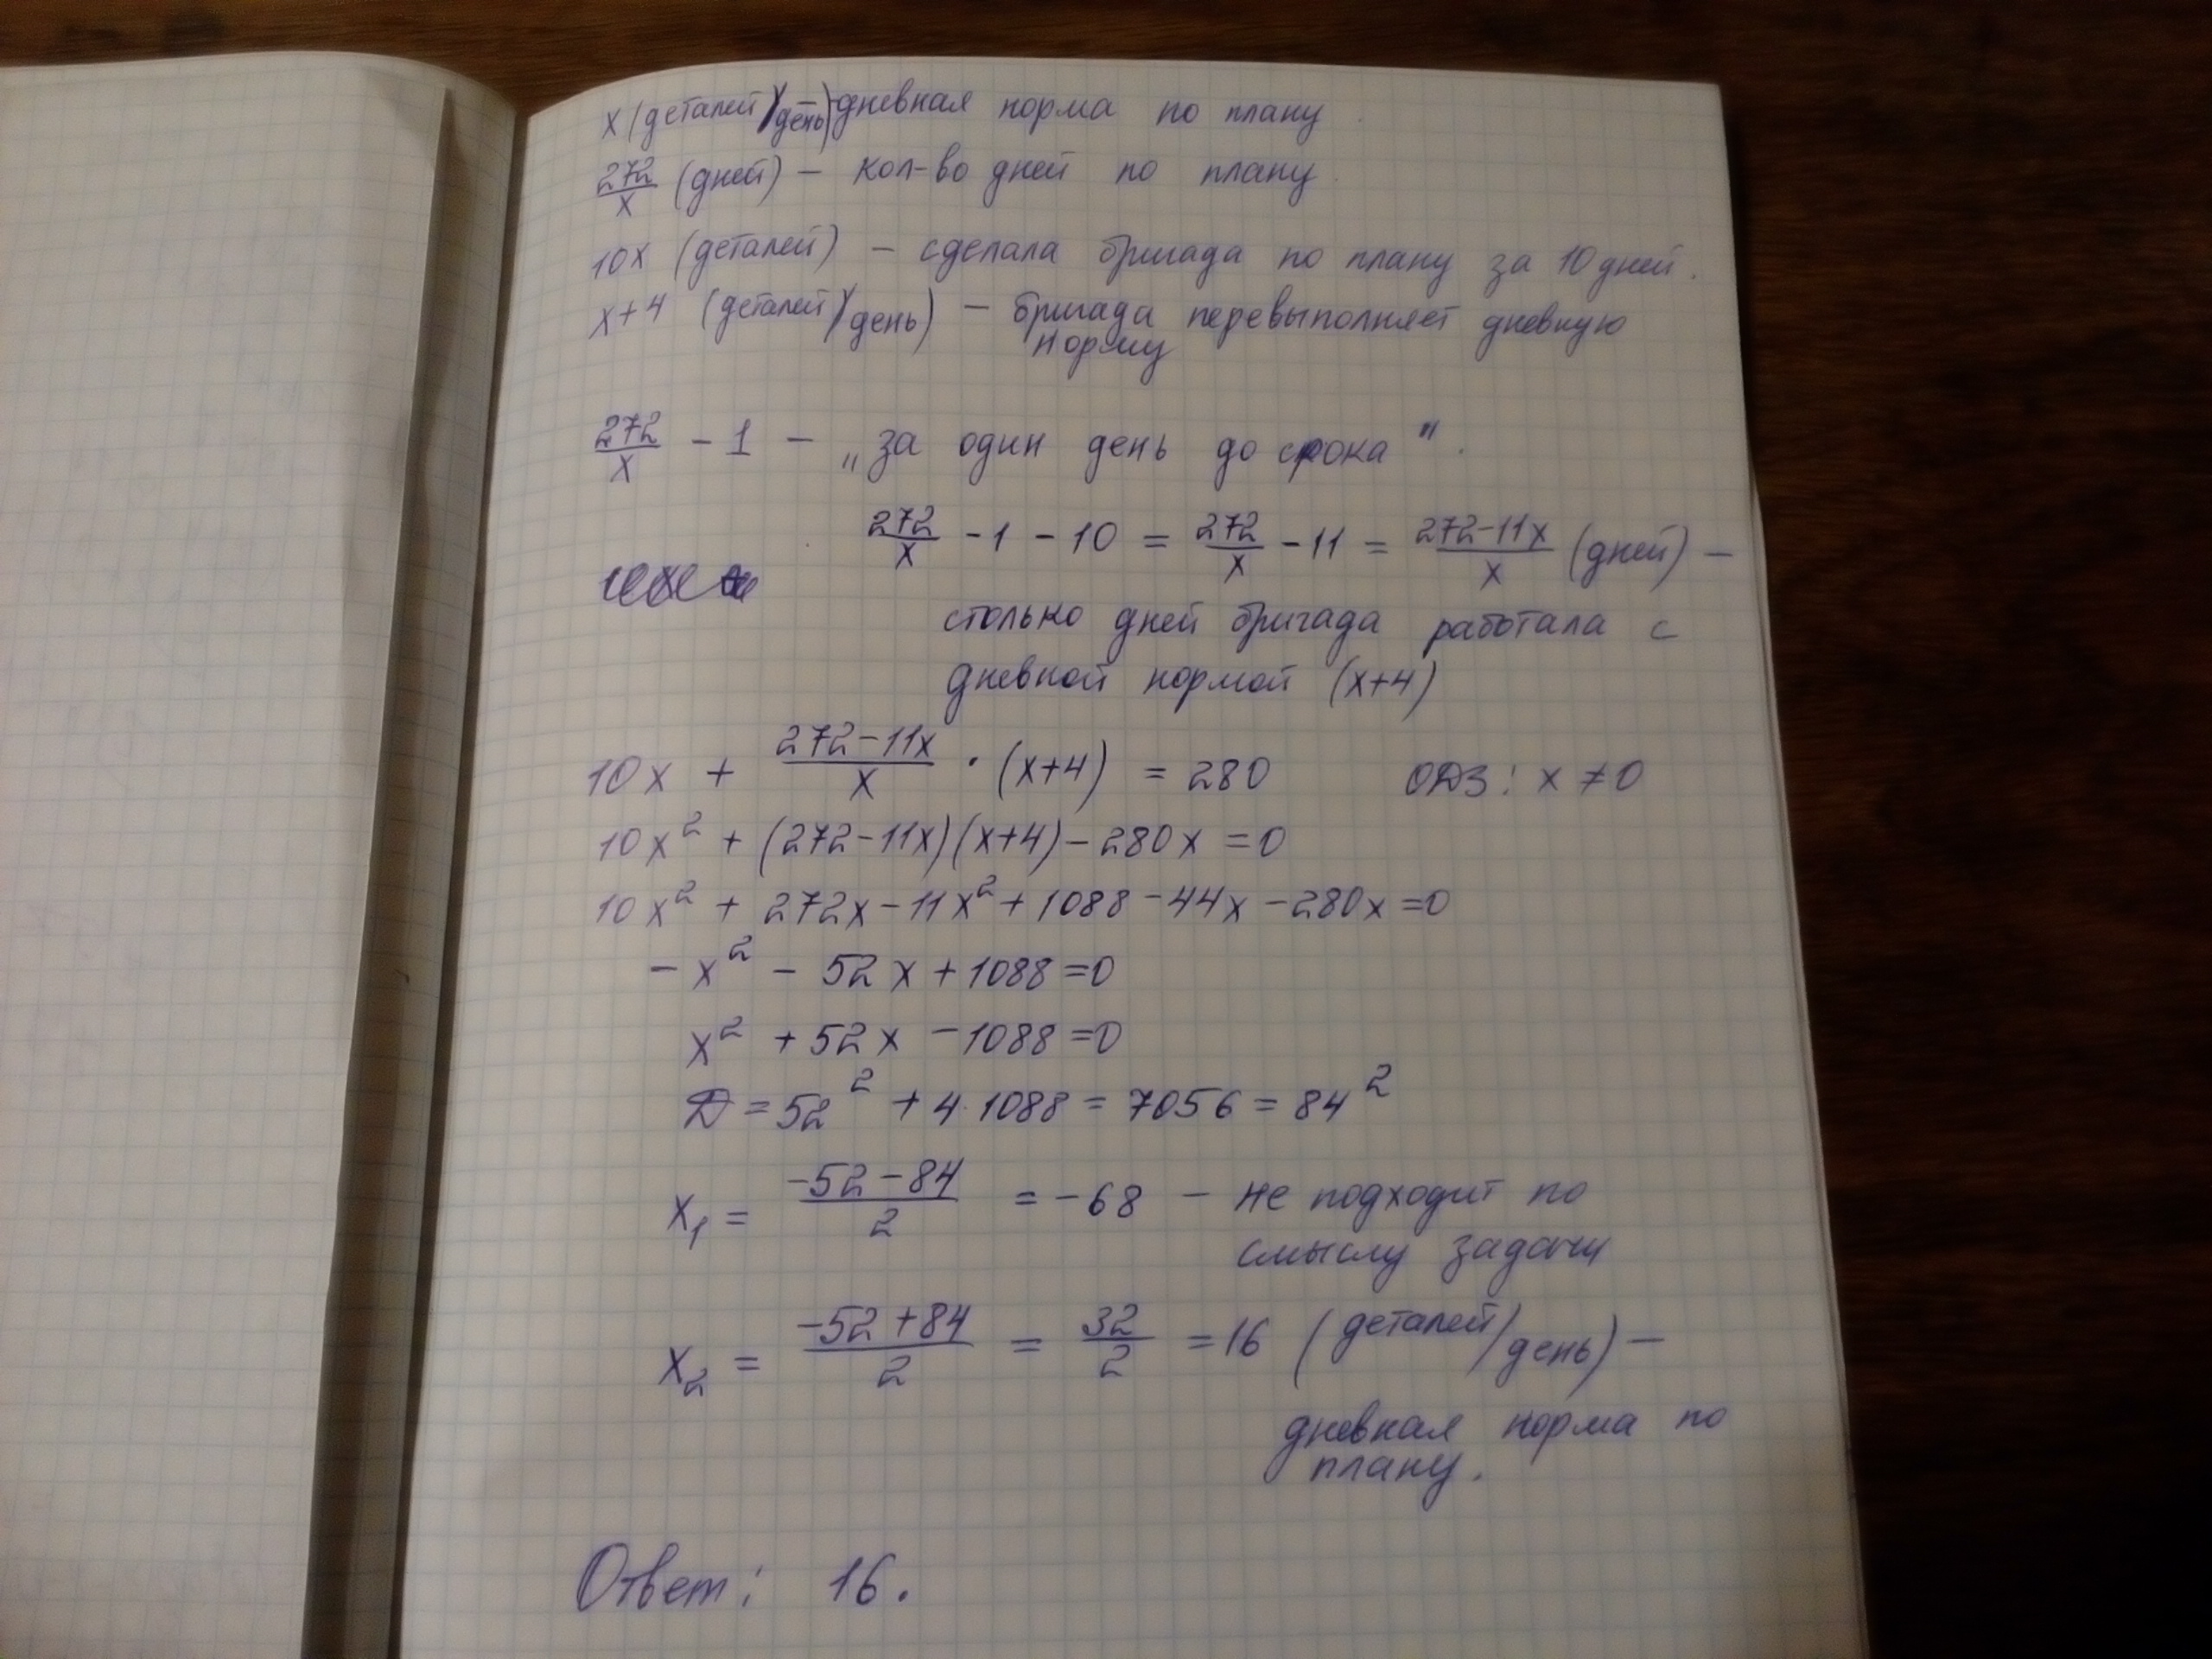 x (деталей/день) дневная норма по плану
272/x (дней) – кол-во дней по плану.
10x (деталей) – сделала бригада по плану за 10 дней.
x+4 (деталей/день) – бригада перевыполняет дневную
норму
272/x - 1 – „за один день до срока".
272/x - 1 - 10 = 272/x - 11 = (272-11x)/x (дней) –
столько дней бригада работала с
дневной нормой (x+4)
10x + (272-11x)/x · (x+4) = 280 ОДЗ: x ≠ 0
10x² + (272-11x)(x+4) - 280x = 0
10x² + 272x - 11x² + 1088 - 44x - 280x = 0
- x² - 52x + 1088 = 0
x² + 52x - 1088 = 0
Д = 52² + 4·1088 = 7056 = 84²
x₁ = (-52-84)/2 = -68 – не подходит по
смыслу задачи
x₂ = (-52+84)/2 = 32/2 = 16 (деталей/день) –
дневная норма по
плану.
Ответ: 16.